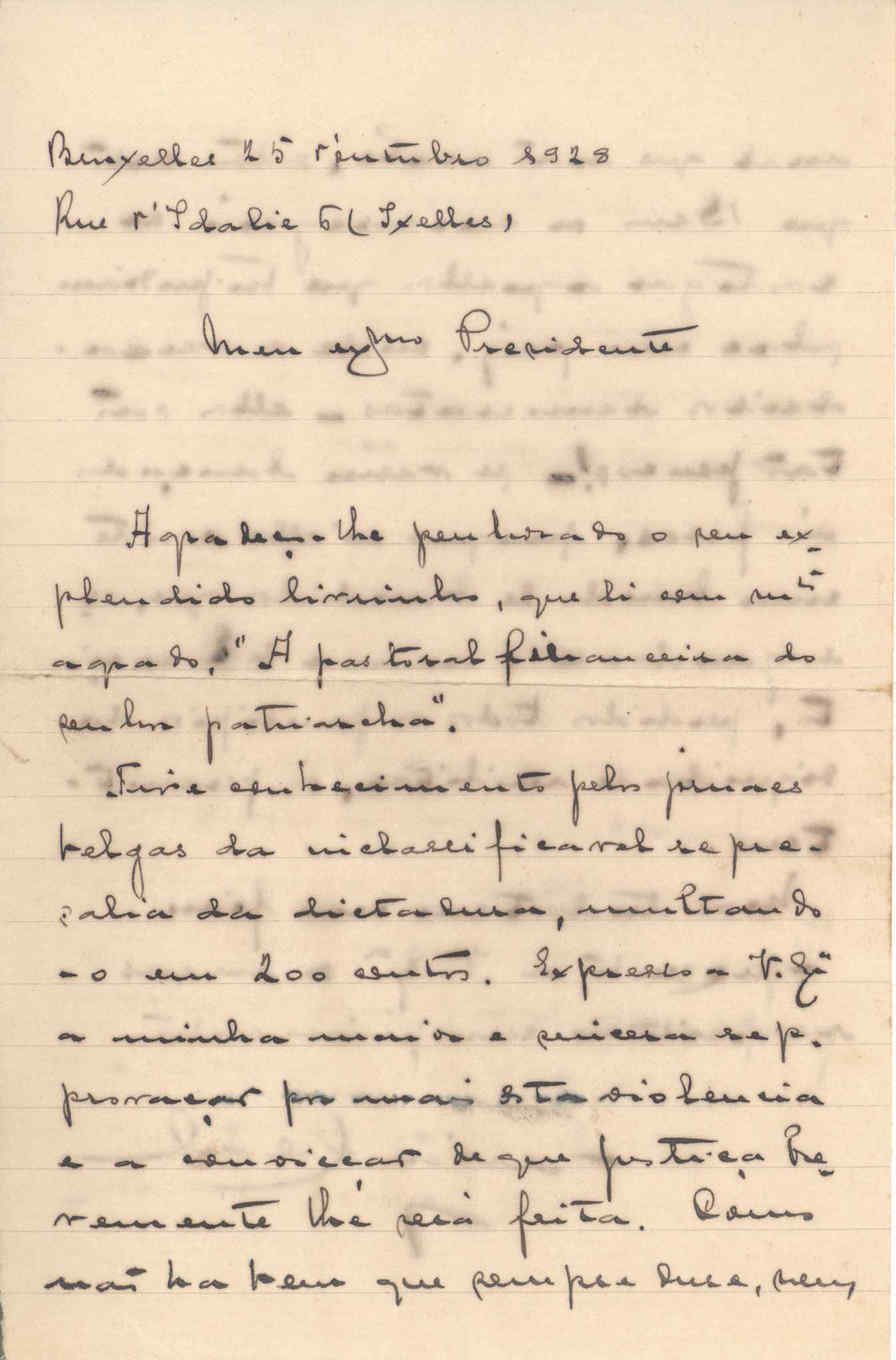 Bruxelles 25 d'outubro 1928
Rue d'Idalie 6 (Ixelles)
Meu exmo Presidente
Agradeço-lhe penhorado o seu ex-
plendido livrinho, que li com mto
agrado, "A pastoral financeira do
senhor patriarcha".
Tive conhecimento pelos jornaes
belgas da inclassificavel repre-
salia da dictadura, multando
-o em 200 contos. Expresso a V. Exa
a minha maior e sincera rep-
provaçaõ por mais esta violencia
e a convicçaõ de que justiça bre-
vemente lhe será feita. Como
naõ ha bem que sempre dure, nem